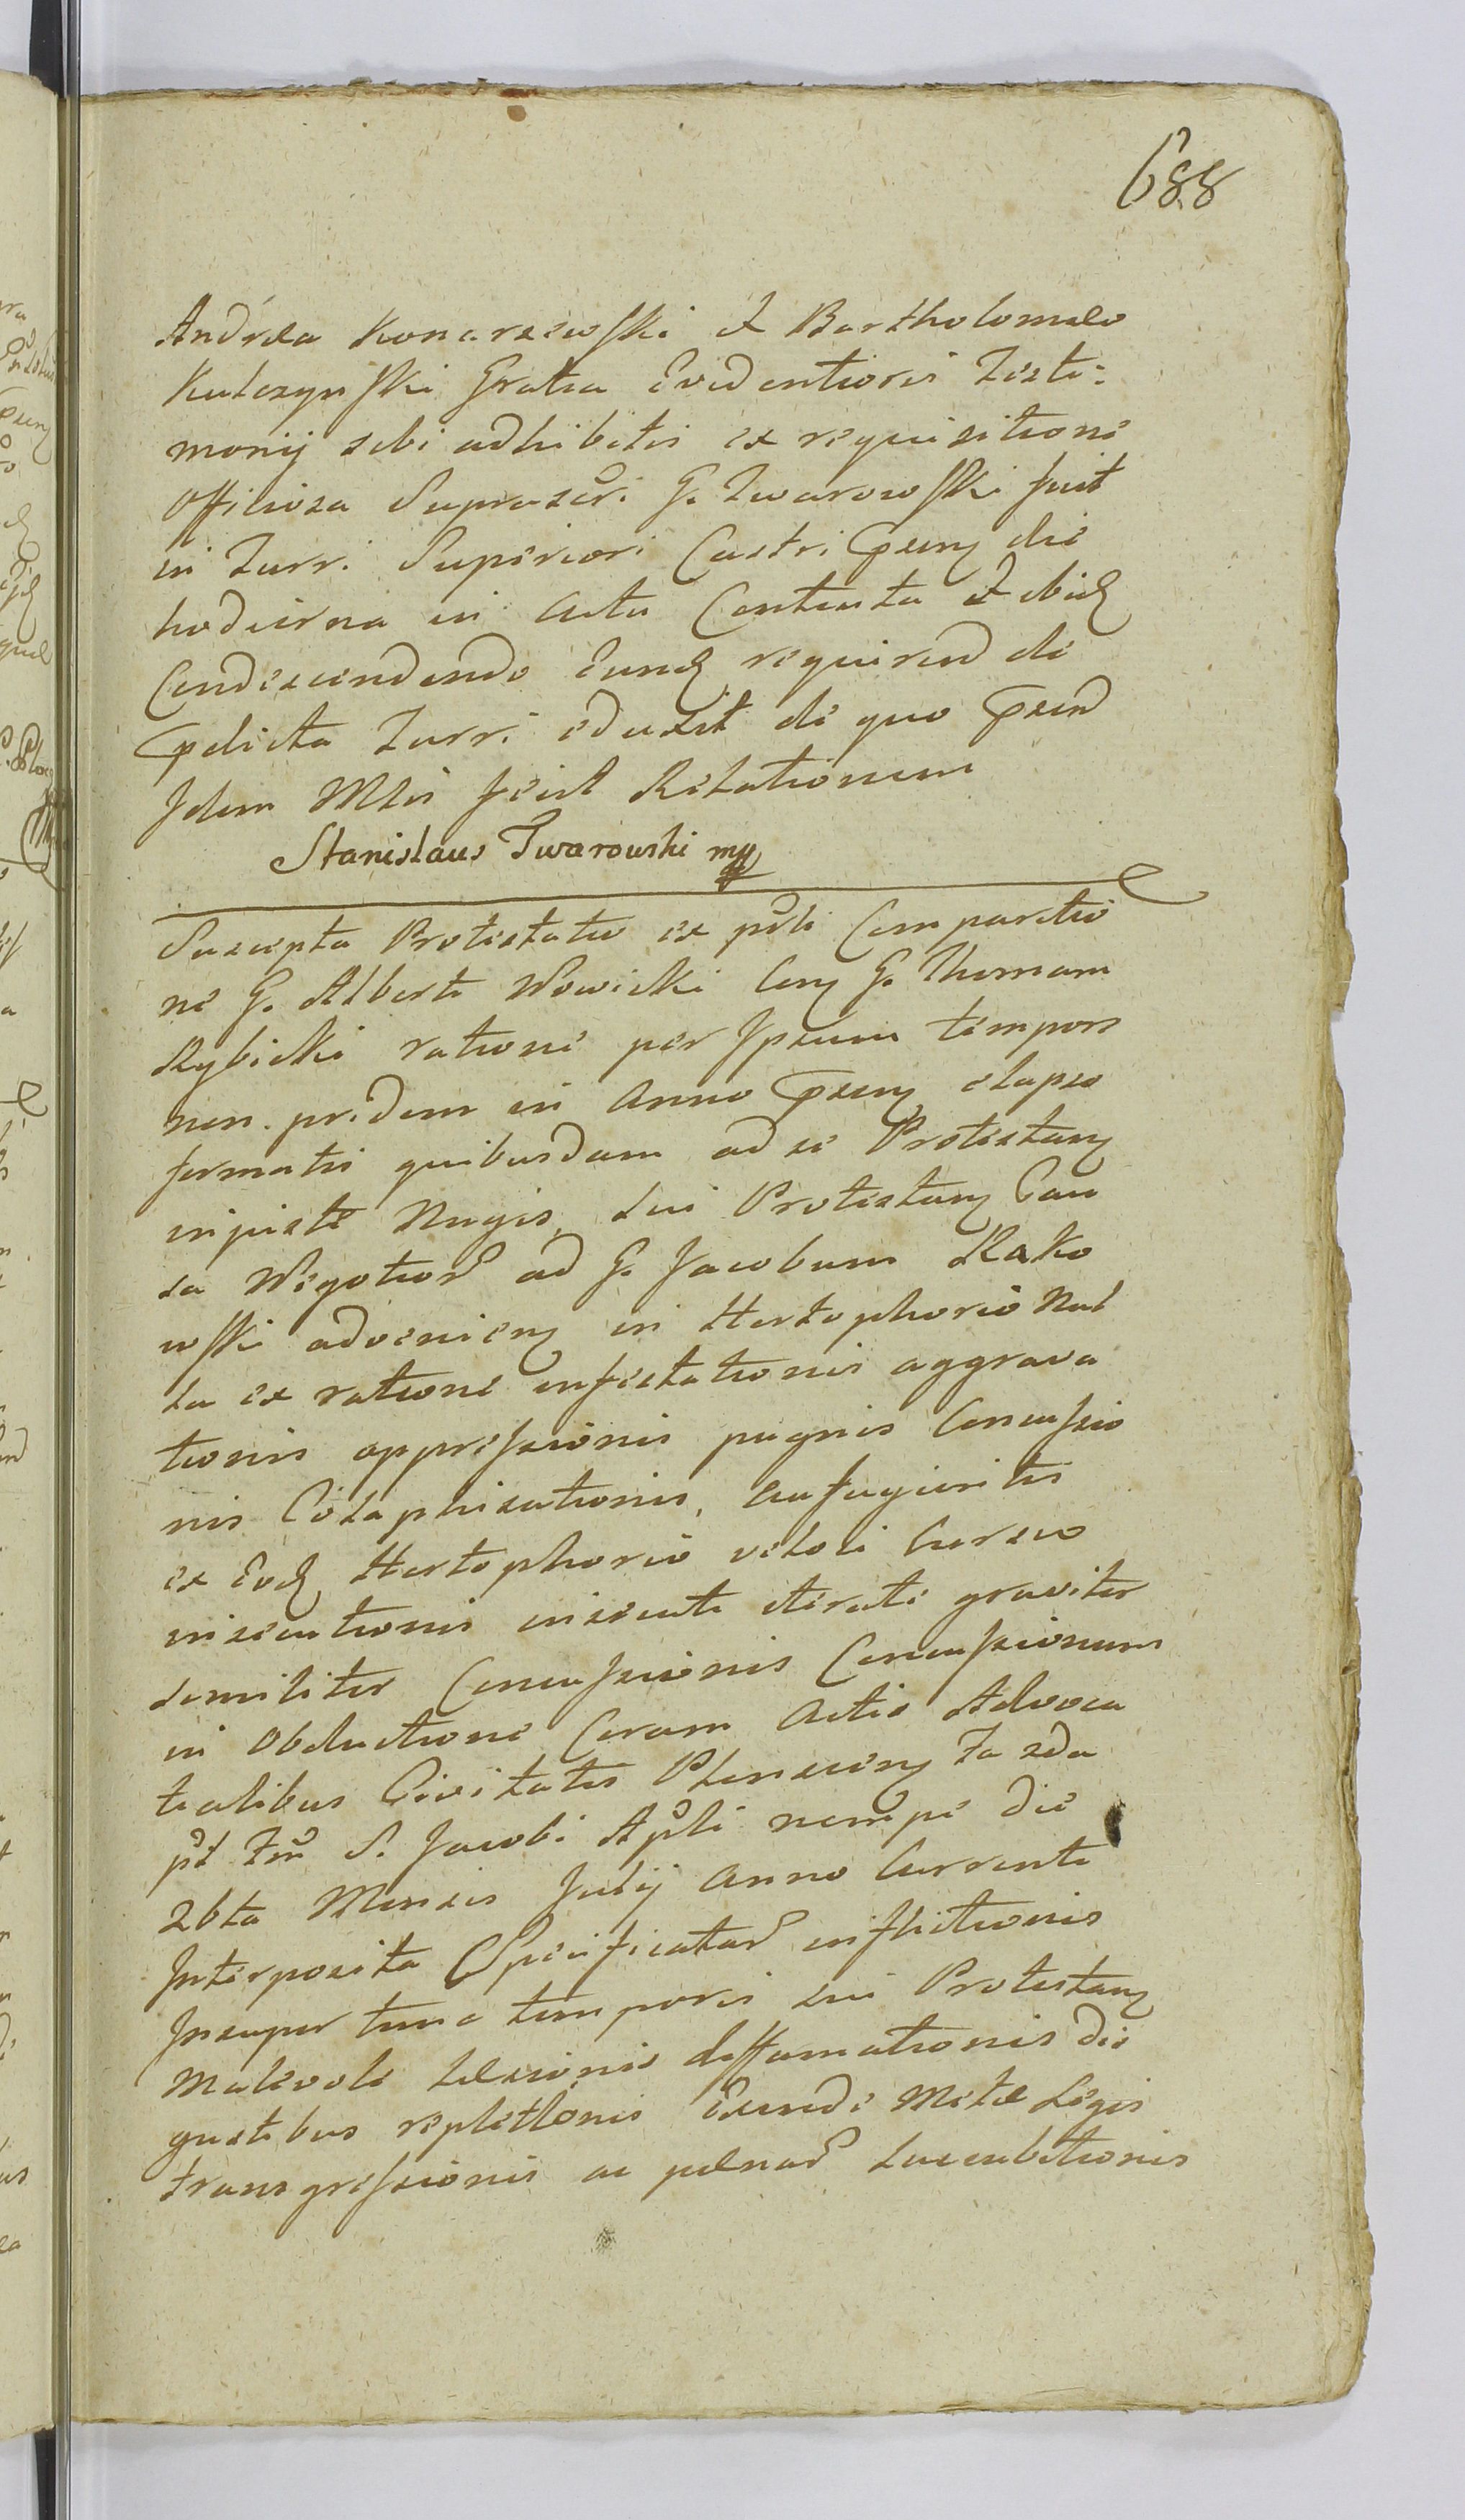 688
Andrea Konarzewski et Bartholomeo
Kulczynski Gratia Evidentioris Testi:
monij sibi adhibitis ex requisitione
Officiosa Suprascri. G. Twarowski fuit
in Turri Superiori Castri pnsen die
hodierna in Actu Contenta et ibid
Condescendendo Eund requirend de
pdicta Turri eduxit de quo pnsen
Idem Mlis fecit Relationem
Stanislaus Twarowski mp
Suscepta Protestatio ex psli Comparitio
ne G. Alberti Nowicki Con G. Thomam
Rybicki ratione per Ipsum tempore
non pridem in Anno pnsen elapso
formatis quibusdam ad se Protestan
injuste Nugis, sui Protestan Cau
sa Negotior ad G. Jacobum Rako
wski advenien in Hortophorio Nul
la ex ratione infestationis aggrava
tionis oppressionis pugnis Concussio
nis Colaphisationis, Aufugientis
ex Eod Hortophorio veloci Cursu
insecutionis insecuti iterate graviter
similiter Concussionis Concussionum
in Obductione Coram Actis Advoca
tialibus Civitatis Plonscien Fa 2da
pt Fm S. Jacobi Apli nempe die
26ta Mensis Julij Anno Currenti
Interposita Specificatar inflictionis
Insuper tunc temporis sui Protestan
Malevole Læsionis diffamationis dis
gustibus repletionis Exinde Metæ Legis
transgressionis ac pænar Succubitionis